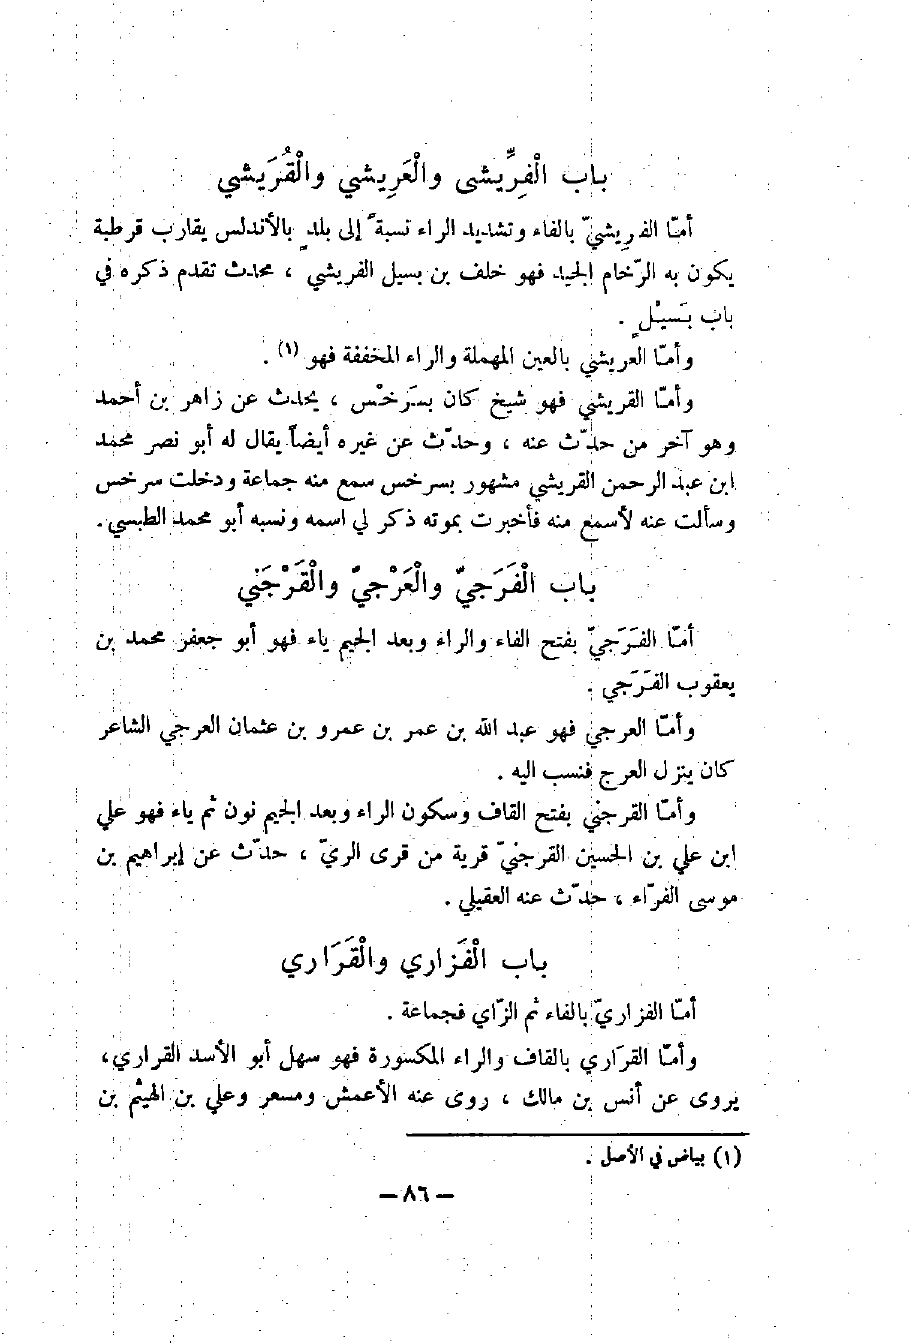 باب الْفِرِّيشي والْعَرِيشي والْقُرَيشي
أمّا الفرِيشيّ بالفاء وتشديد الراء نسبةً إلى بلدٍ بالأندلس يقارب قرطبة
يكون به الرّخام الجيد فهو خلف بن بسيل الفريشي ، محدث تقدم ذكره في
باب بَسيْلٍ .
وأمّا العريشي بالعين المهملة والراء المخففة فهو (١) .
وأمّا القريشي فهو شيخ كان بسَرخْس ، يحدث عن زاهر بن أحمد
وهو آخر من حدّث عنه ، وحدّث عن غيره أيضاً يقال له أبو نصر محمد
ابن عبد الرحمن القريشي مشهور بسرخس سمع منه جماعة ودخلت سرخس
وسألت عنه لأسمع منه فأخبرت بموته ذكر لي اسمه ونسبه أبو محمد الطبسي .
باب الْفَرَجيّ والْعَرْجيّ والْقَرْجَني
أمّا الفَرَجيّ بفتح الفاء والراء وبعد الجيم ياء فهو أبو جعفر محمد بن
يعقوب الفَرَجي .
وأمّا العرجي فهو عبد الله بن عمر بن عمرو بن عثمان العرجي الشاعر
كان ينزل العرج فنسب اليه .
وأمّا القرجني بفتح القاف وسكون الراء وبعد الجيم نون ثم ياء فهو علي
ابن علي بن الحسين القرجنيّ قرية من قرى الريّ ، حدّث عن إبراهيم بن
موسى الفرّاء ، حدّث عنه العقيلي .
باب الْفَزاري والْقَرَاري
أمّا الفزاريّ بالفاء ثم الزّاي فجماعة .
وأمّا القرَاري بالقاف والراء المكسورة فهو سهل أبو الأسد القراري،
يروى عن أنس بن مالك ، روى عنه الأعمش ومسعر وعلي بن الهيثم بن
(١) بياض في الأصل .
— ٨٦ —